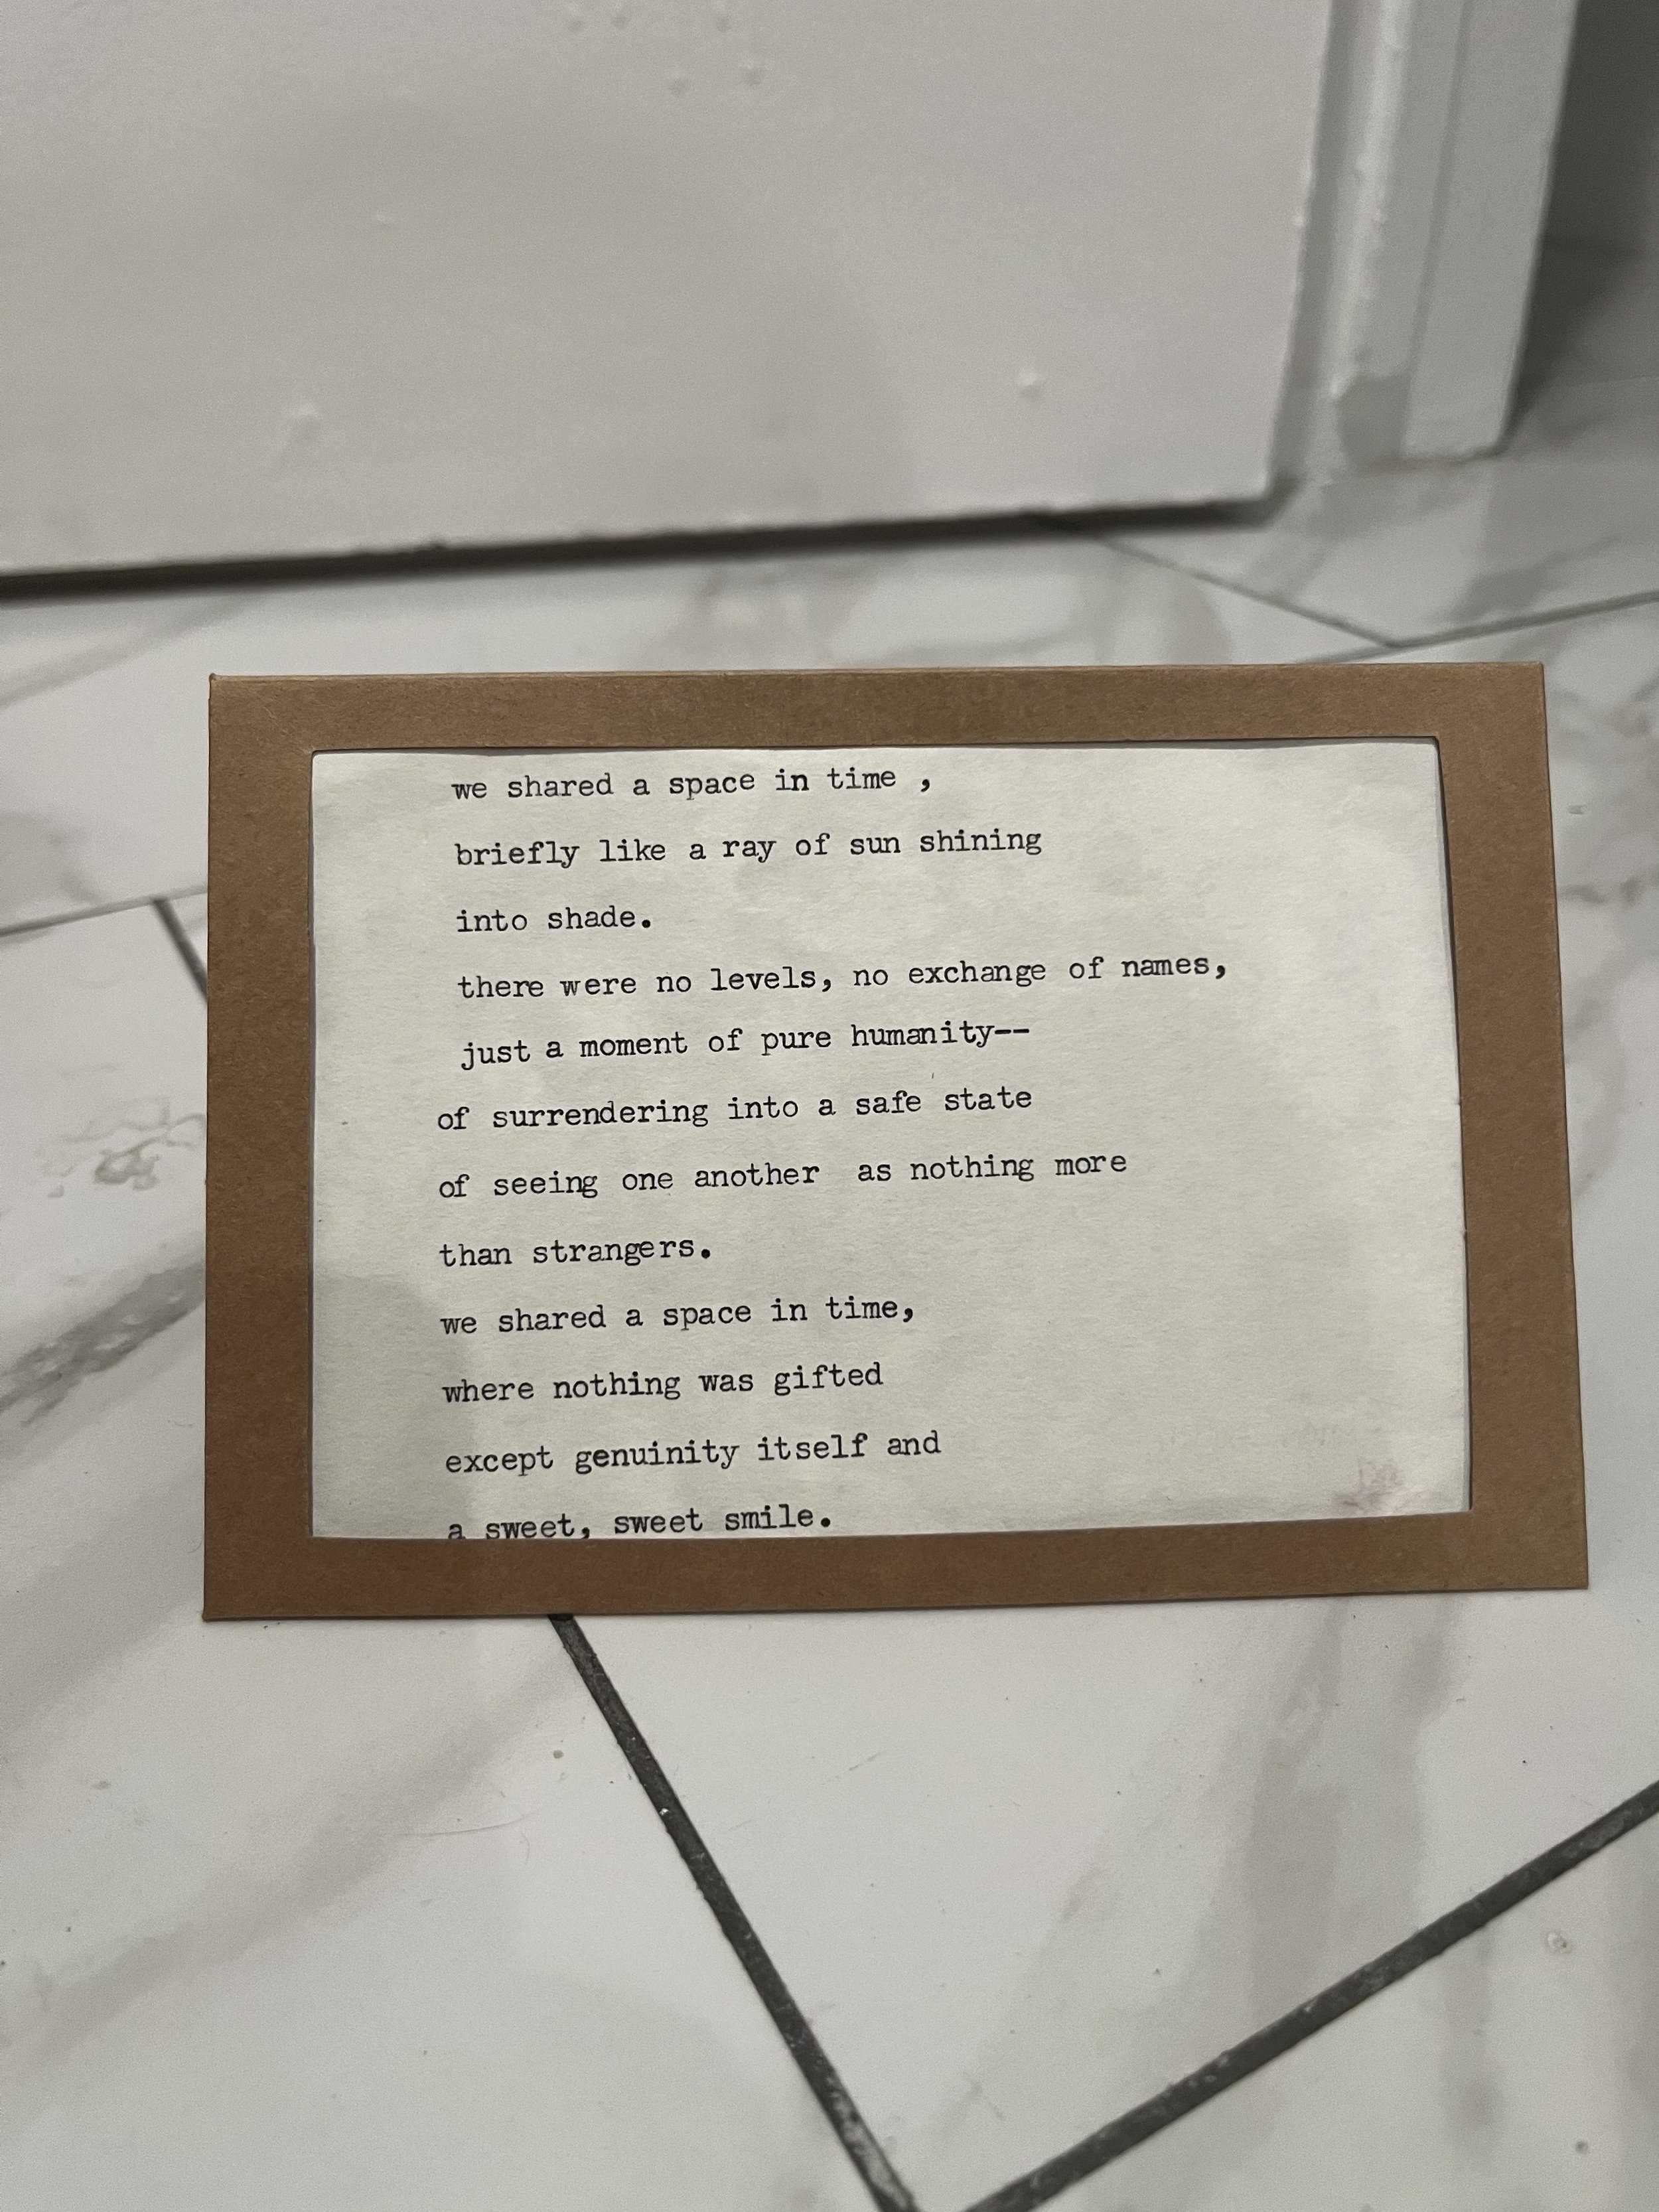 we shared a space in time ,
briefly like a ray of sun shining
into shade.
there were no levels, no exchange of names,
just a moment of pure humanity--
of surrendering into a safe state
of seeing one another  as nothing more
than strangers.
we shared a space in time,
where nothing was gifted
except genuinity itself and
a sweet, sweet smile.